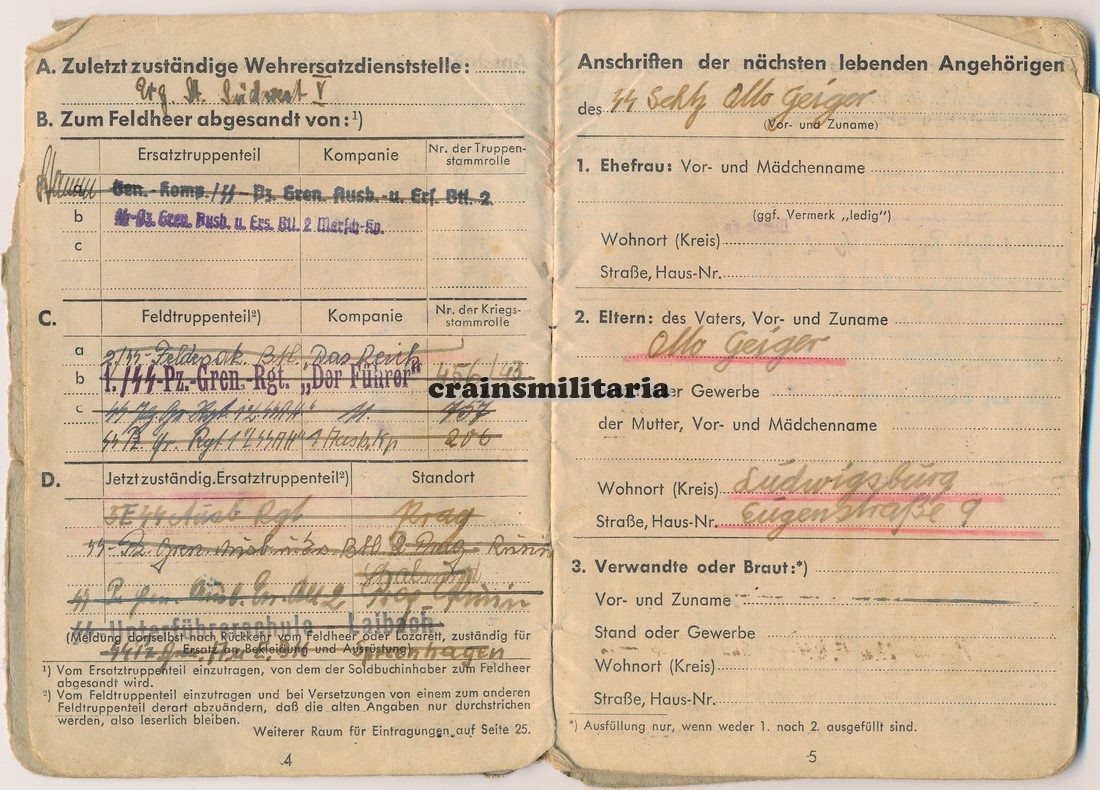 A. Zuletzt zuständige Wehrersatzdienststelle:
Erg. St. Südwest V
B. Zum Feldheer abgesandt von:¹)
Ersatztruppenteil Kompanie Nr. der Truppenstammrolle
a Gen.-Komp./SS-Pz. Gren. Ausb.-u. Ers. Btl. 2
b SS-Pz. Gren. Ausb. u. Ers. Btl. 2 Marsch-Kp.
c
C. Feldtruppenteil²) Kompanie Nr. der Kriegsstammrolle
a 2/SS-Feldersatz Btl. „Das Reich
b 1./SS-Pz.-Gren.-Rgt. „Der Führer" 456/43
c SS Pz Gr Rgt 1 "LSSAH" 11 757
SS Pz. Gr. Rgt 1 "LSSAH" 206
D. Jetzt zuständig. Ersatztruppenteil²) Standort
SS Ausb Rgt Prag
SS-Pz. Gren. Ausb. u. Ers. Btl. 2 Prag-Rusin
SS Pz Gren. Ausb. Ers. Btl 2 Prag
SS-Unterführerschule-Laibach
(Meldung dortselbst nach Rückkehr vom Feldheer oder Lazarett, zuständig für
Ersatz an Bekleidung und Ausrüstung)
¹) Vom Ersatztruppenteil einzutragen, von dem der Soldbuchinhaber zum Feldheer
abgesandt wird.
²) Vom Feldtruppenteil einzutragen und bei Versetzungen von einem zum anderen
Feldtruppenteil derart abzuändern, daß die alten Angaben nur durchstrichen
werden, also leserlich bleiben.
Weiterer Raum für Eintragungen auf Seite 25.
4
Anschriften der nächsten lebenden Angehörigen
des SS Schtz Otto Geiger
(Vor- und Zuname)
1. Ehefrau: Vor- und Mädchenname
(ggf. Vermerk „ledig")
Wohnort (Kreis)
Straße, Haus-Nr.
2. Eltern: des Vaters, Vor- und Zuname
Otto Geiger
crainsmilitaria
er Gewerbe
der Mutter, Vor- und Mädchenname
Wohnort (Kreis) Ludwigsburg
Straße, Haus-Nr. Eugenstraße 9
3. Verwandte oder Braut:*)
Vor- und Zuname
Stand oder Gewerbe
Wohnort (Kreis)
Straße, Haus-Nr.
*) Ausfüllung nur, wenn weder 1. noch 2. ausgefüllt sind.
5